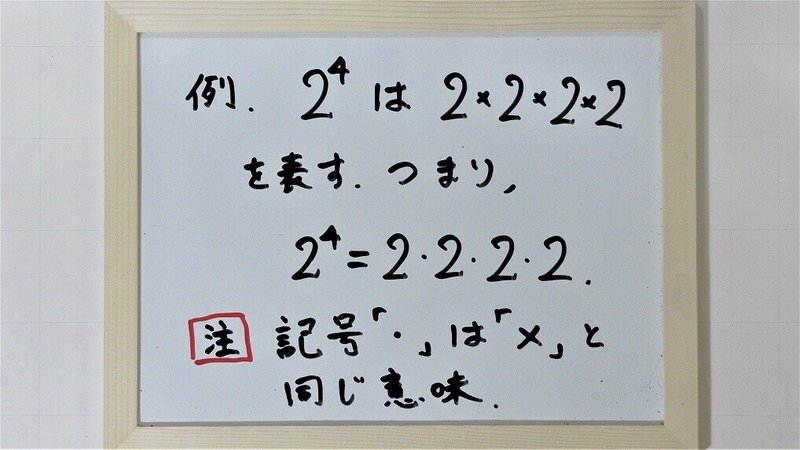 例. 2⁴ は 2×2×2×2
を表す. つまり,
2⁴=2・2・2・2.
注 記号「・」は「×」と
同じ意味.